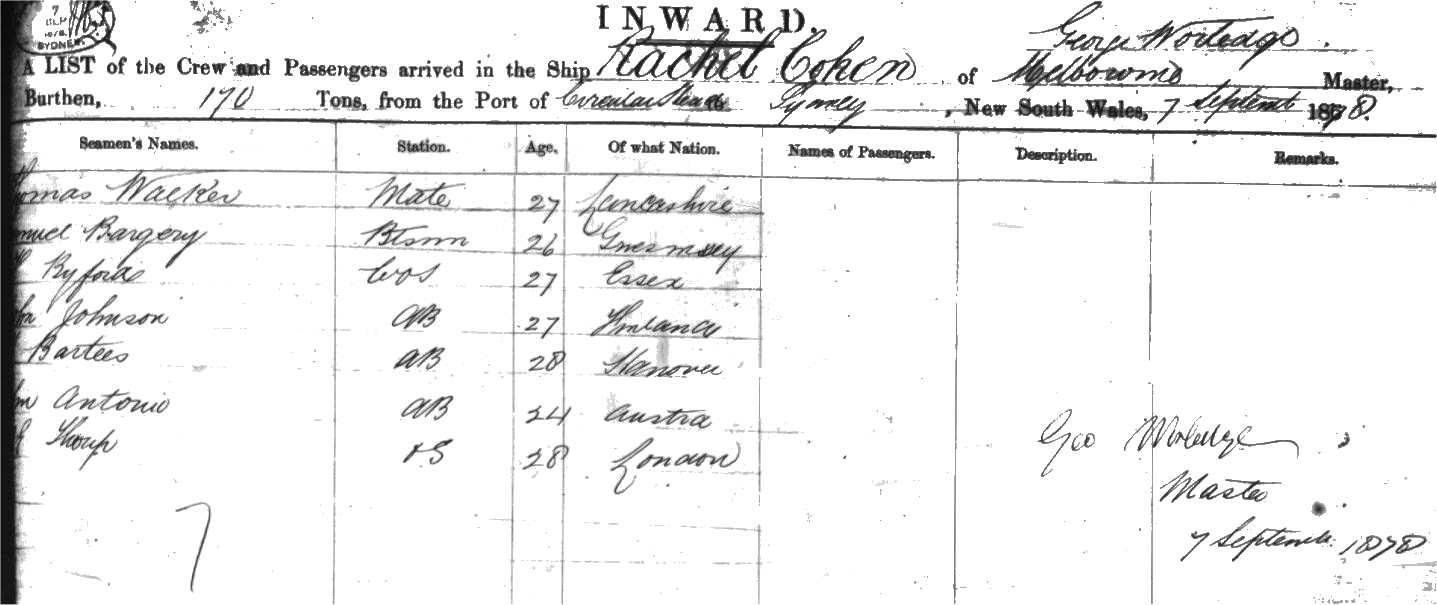 7
SYDNEY
INWARD.
George
A LIST of the Crew and Passengers arrived in the Ship Rachel Cohen of Melbourne Master,
Burthen, 170 Tons, from the Port of Circular , New South Wales, 7 September 1878.
Seamen's Names. Station. Age. Of what Nation. Names of Passengers. Description. Remarks.
omas Walker Mate 27 Lancashire
muel Bargery Btsmn 26 Guernsey
Ryford 27 Essex
Johnson AB 27 Finland
Bartees AB 28 Hanover
m Antonio AB 24 Austra
Thorp 28 London
Geo
Master
7 September 1878
7